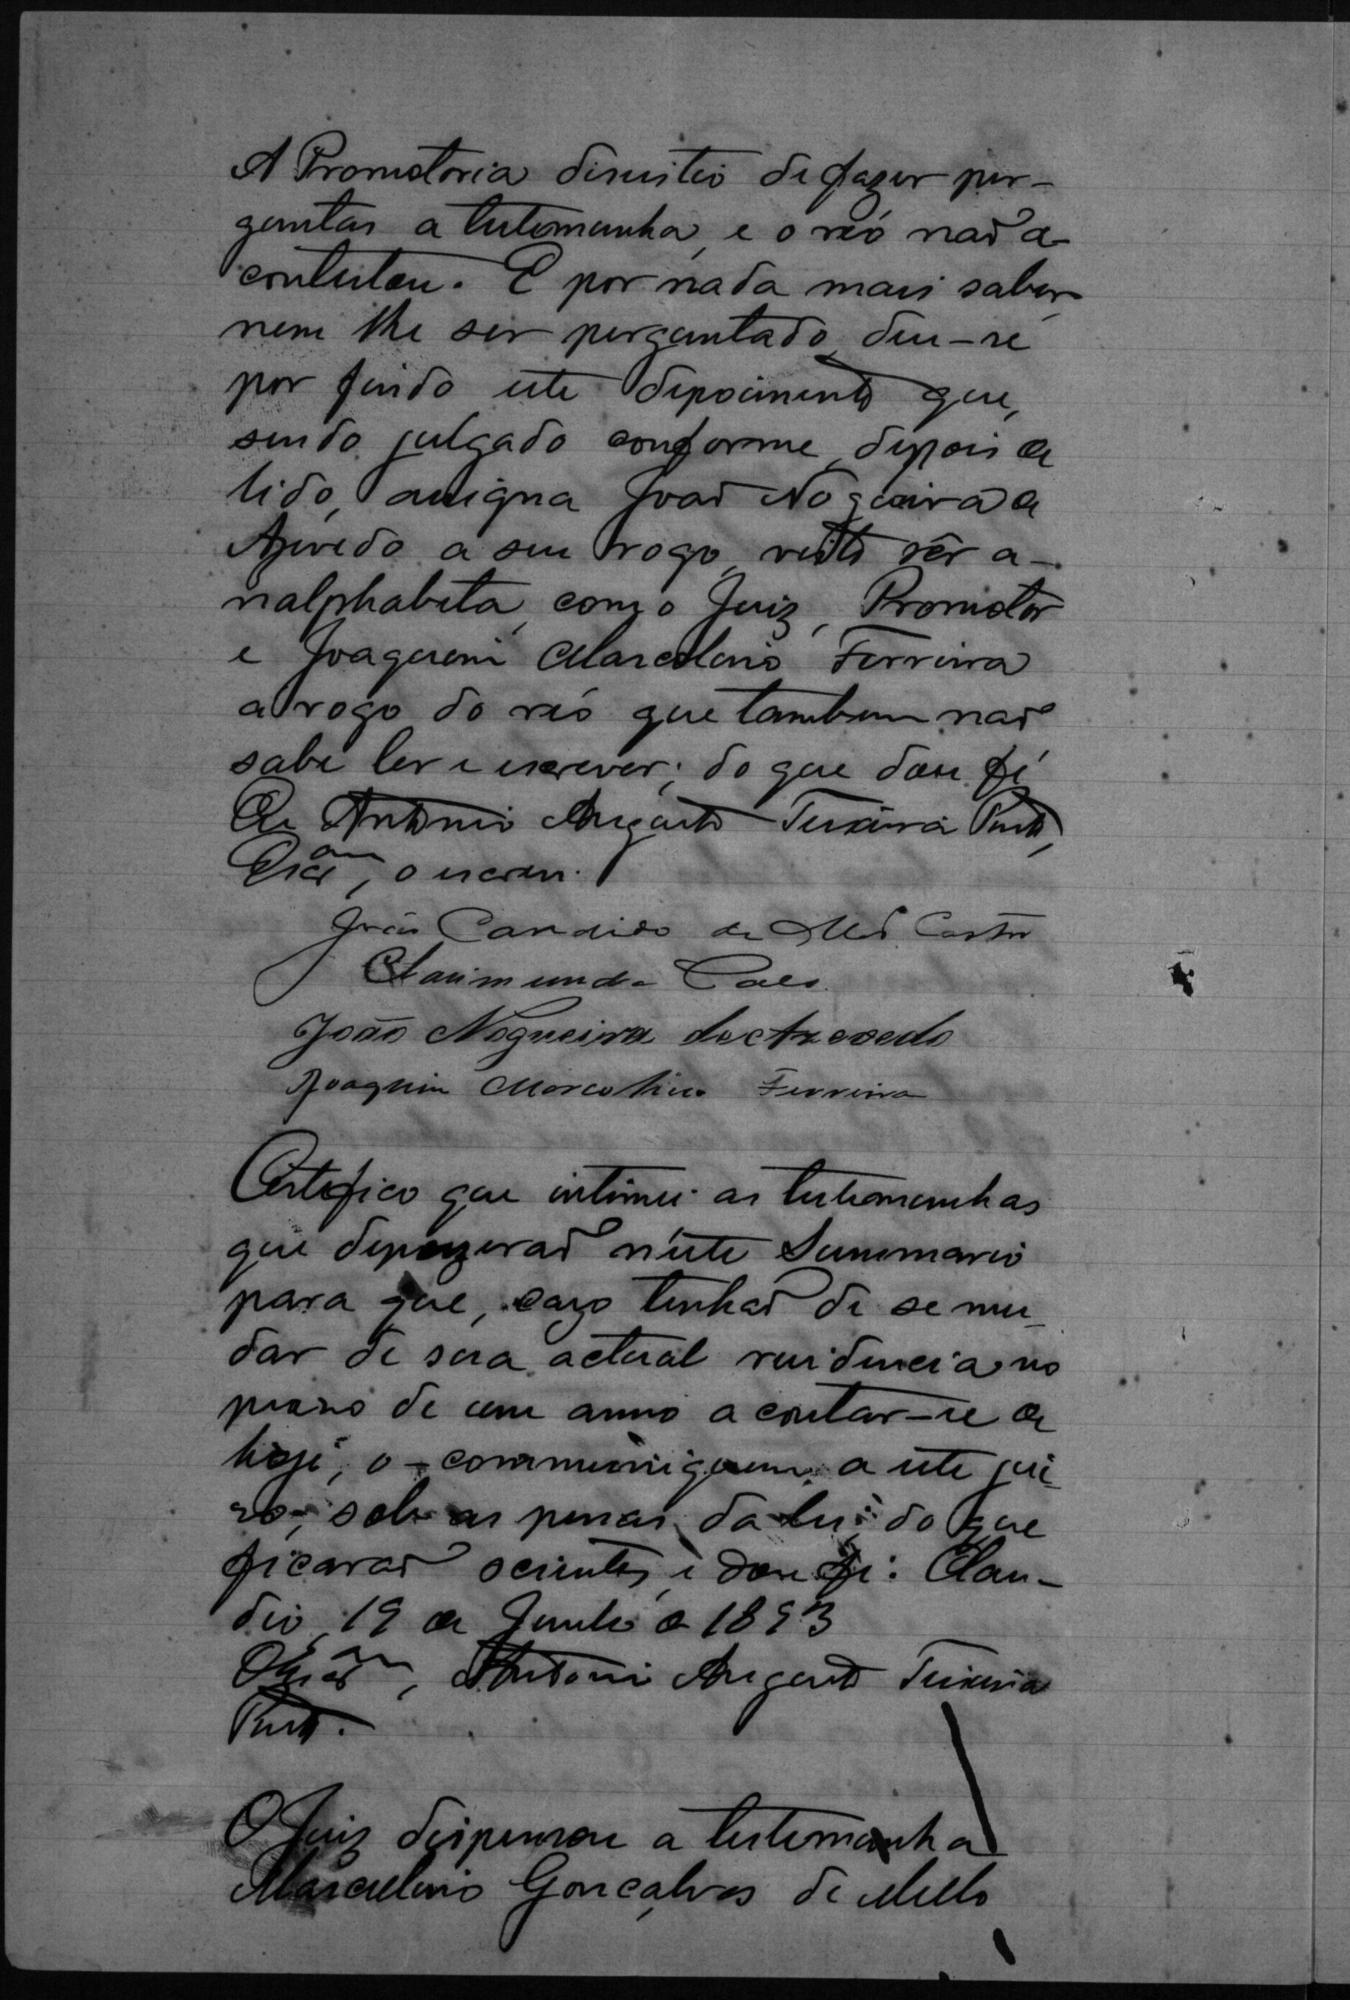 A Promotoria disistio de fazer per-
guntas a testemunha, e o réo não a
contestou. E por nada mais saber
nem lhe ser perguntado, deu-se
por findo este depoimento que,
sendo julgado conforme, depois de
lido, assigna João Nogueira de
Azevedo a seu rogo, visto sêr a-
nalphabeta, com o Juiz, Promotor
e Joaquim Marcolino Ferreira
a rogo do réo que tambem não
sabe ler e escrever; do que dou fé
Eu Antonio Augusto Teixeira Pinto,
Escam, o escrevi.
João Candido de Mel Castro
Clarimundo Paes
João Nogueira de Azevedo
Joaquim Marcolino Ferreira
Certifico que intimei as testemunhas
que depuzerão n'este Summario
para que, cazo tenhão de se mu-
dar de sua actual residencia no
prazo de um anno a contar-se de
hoje, o-communiquem a este jui-
zo, sob as penas da lei; do que
ficarão scientes, e dou fé: Clau-
dio, 19 de Junho de 1893
O Escam, Antonio Augusto Teixeira
Pinto.
O Juiz dispensou a testemunha
Marcelino Gonçalves de Mello